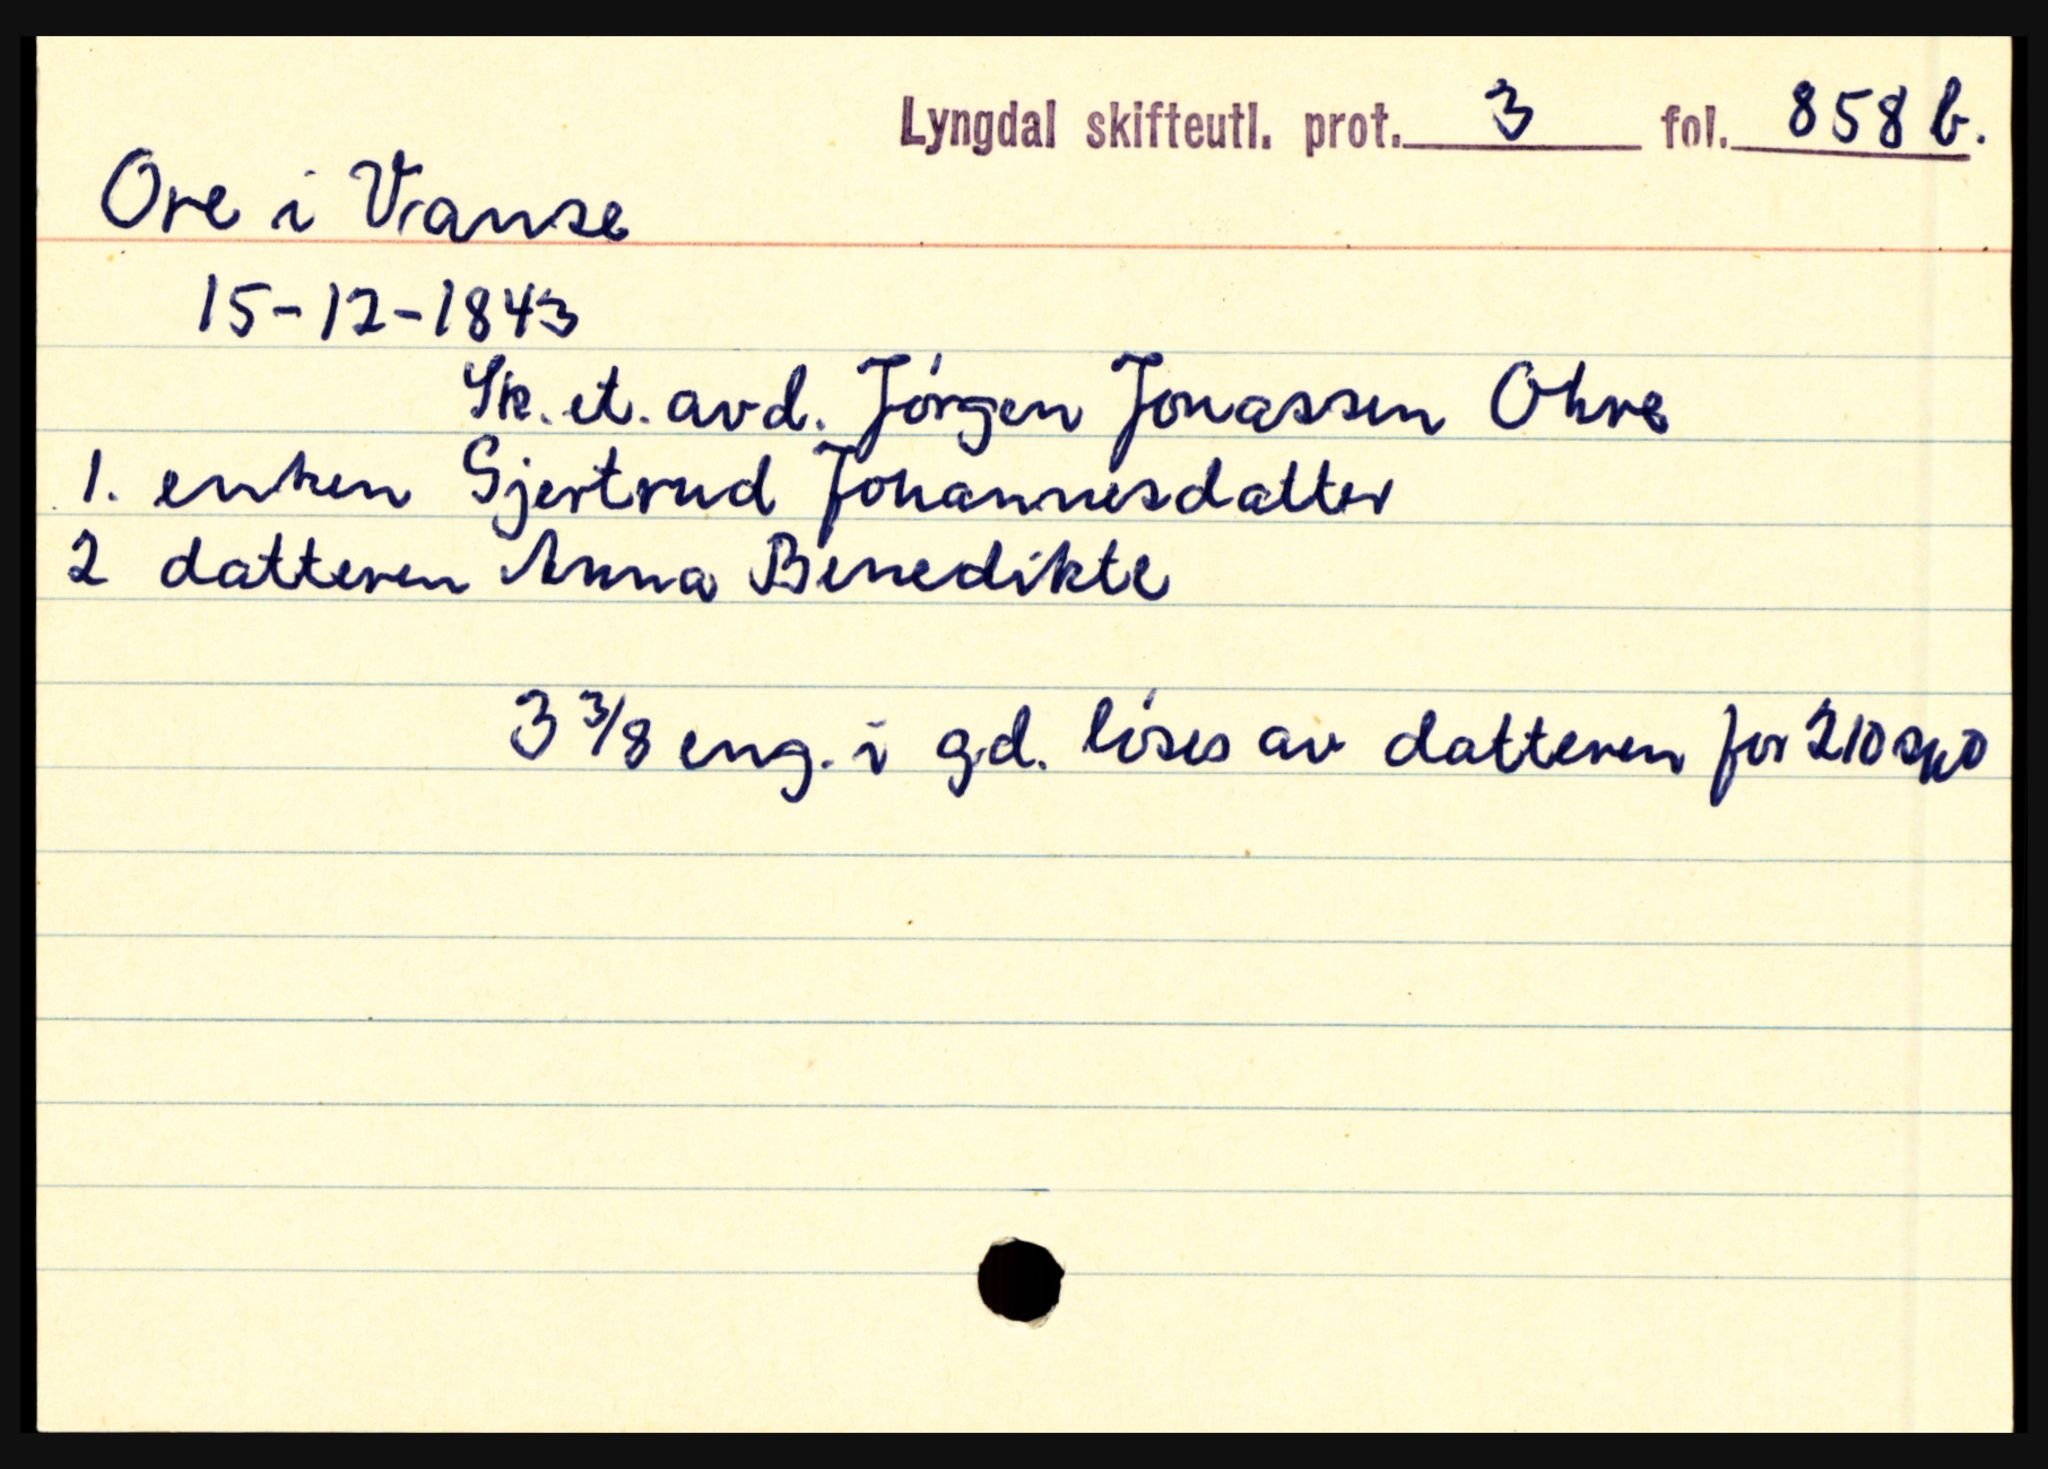 Lyngdal skifteutl. prot. 3 fol. 858 b.
Ore i Vanse
15-12-1843
Sk. et. avd. Jörgen Jonassen Ohre
1. enken Gjertrud Johannesdatter
2 datteren Anna Benedikte
3 3/8 eng. i gd. löses av datteren for 210 spd